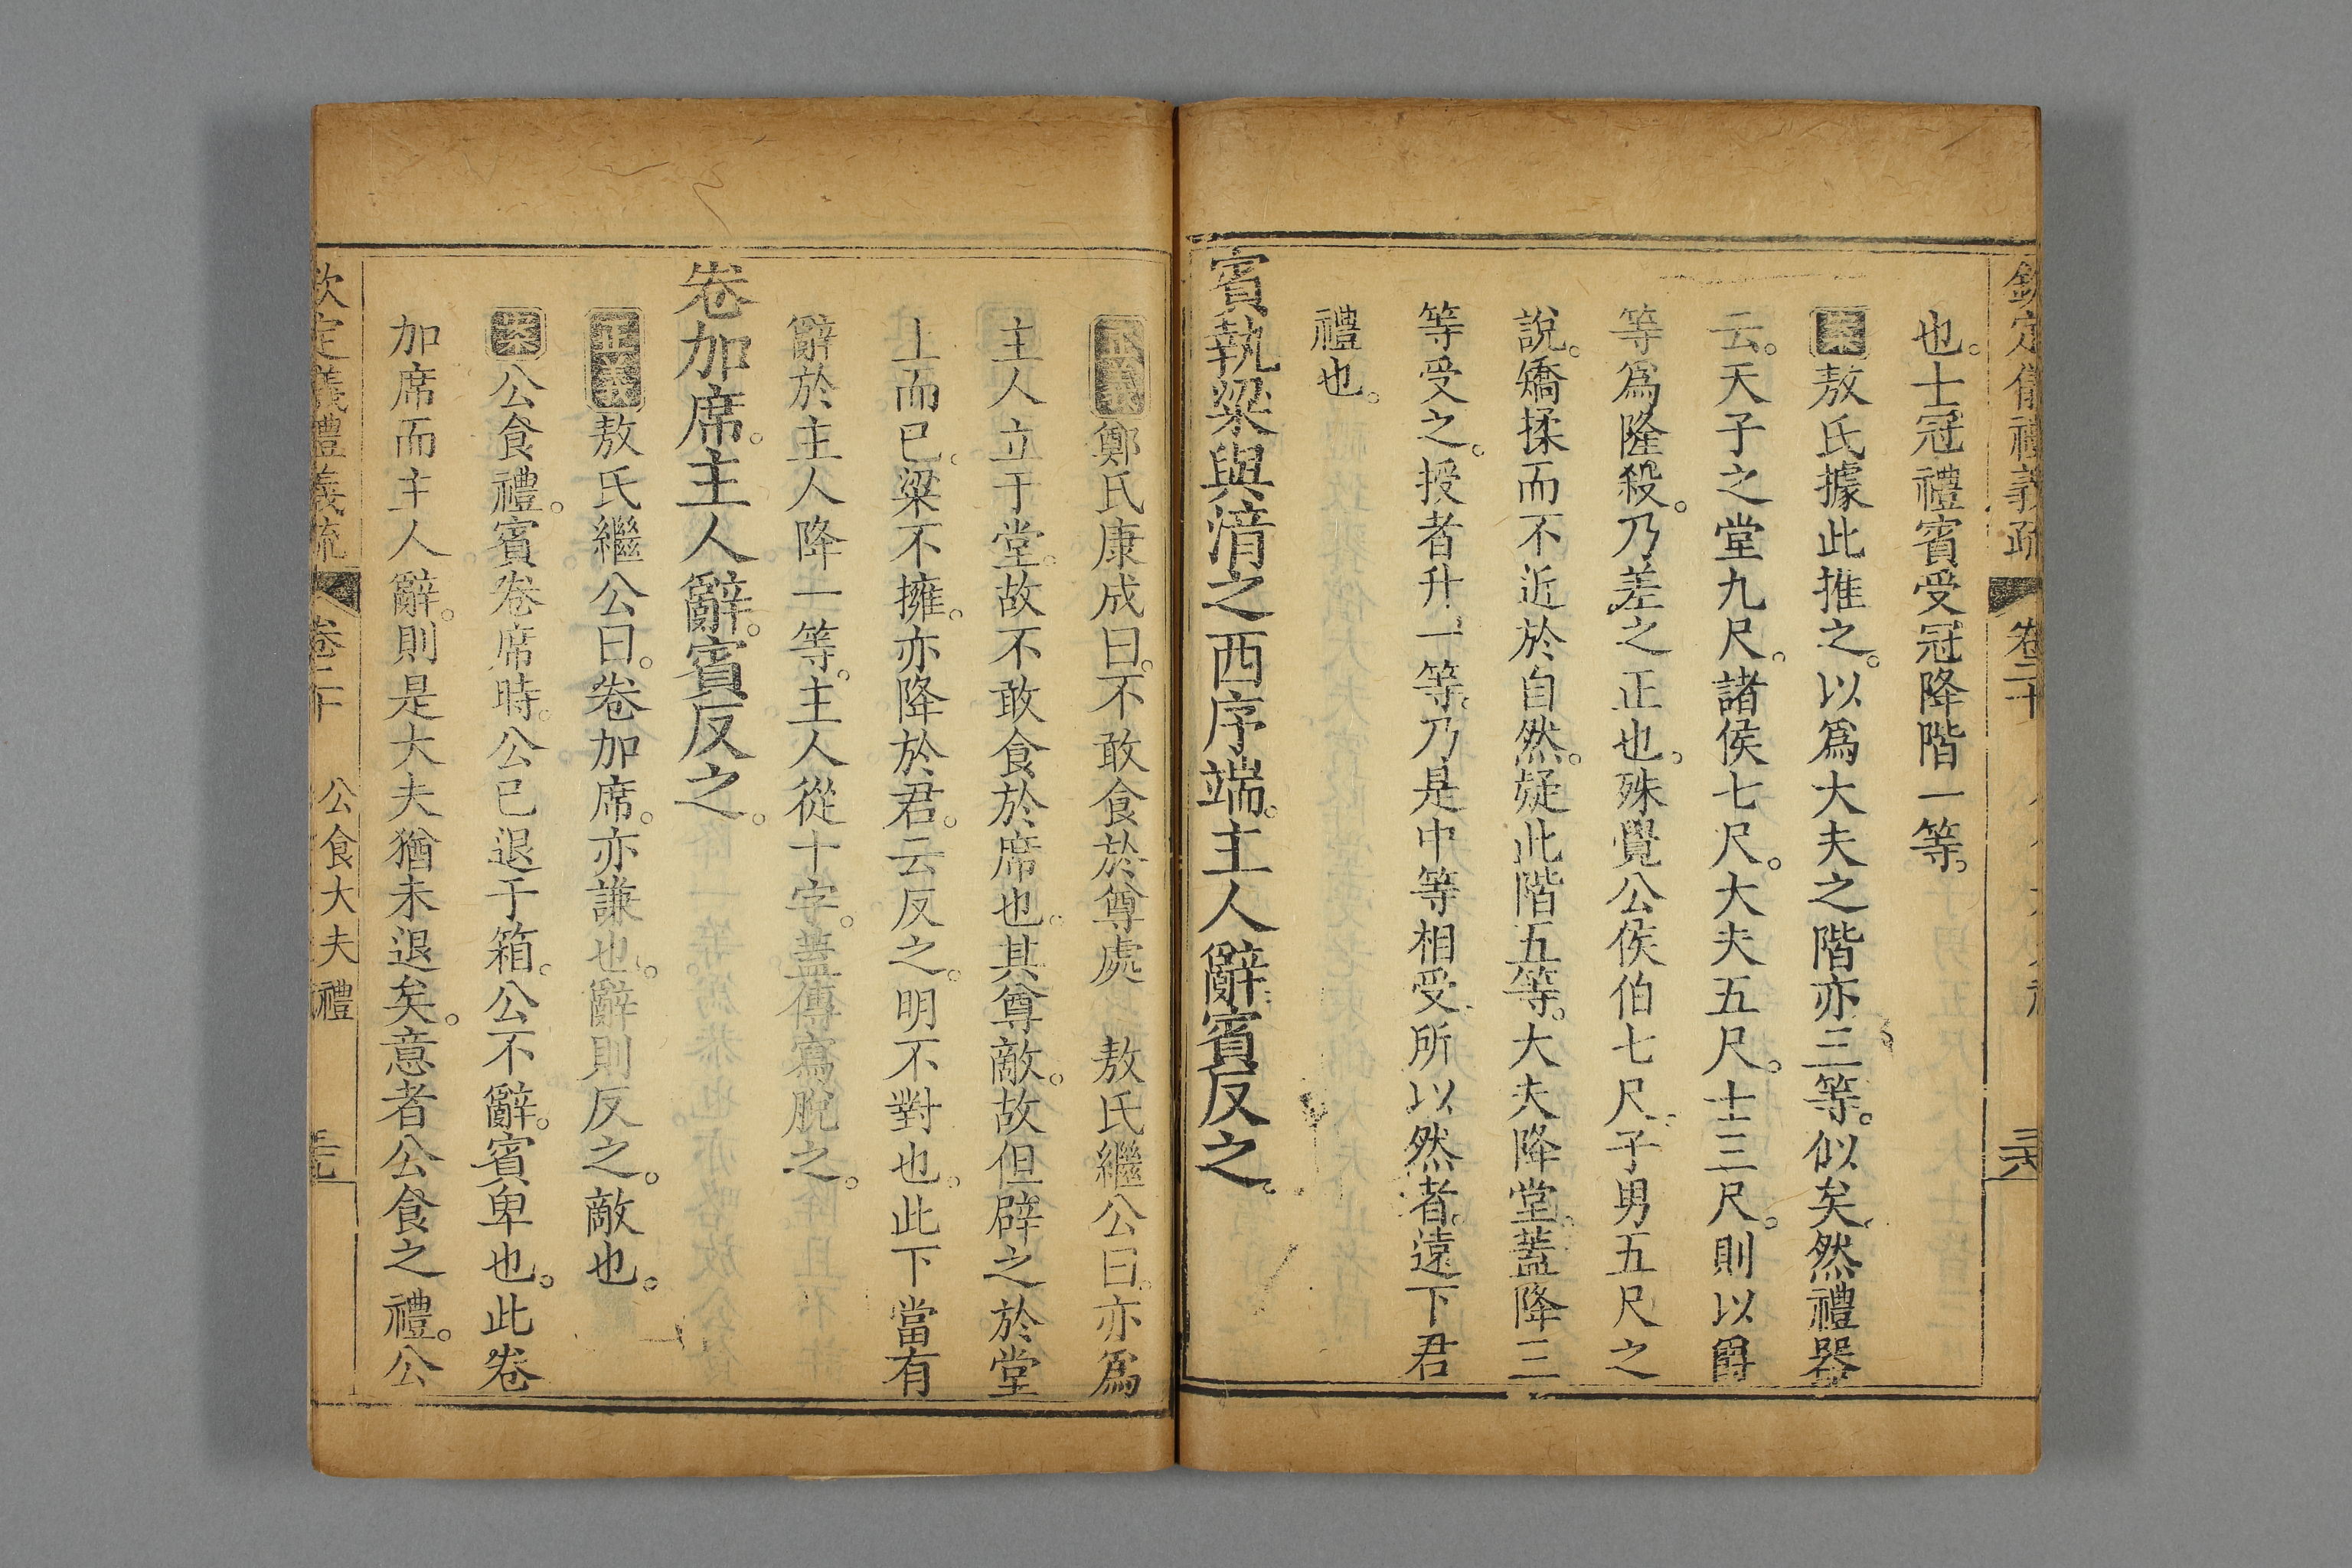 欽定儀禮義疏 卷二十 三六
也。士冠禮賓受冠降階一等。
案敖氏據此推之。以爲大夫之階亦三等。似矣。然禮器
云。天子之堂九尺。諸侯七尺。大夫五尺。士三尺。則以爵
等爲隆殺。乃差之正也。殊覺公侯伯七尺。子男五尺之
說。矯揉而不近於自然。疑此階五等。大夫降堂。蓋降三
等受之。授者升一等。乃是中等相受。所以然者。遠下君
禮也。
賓執粱與湆之西序端。主人辭。賓反之。
正義鄭氏康成曰。不敢食於尊處 敖氏繼公曰。亦爲
主人立于堂。故不敢食於席也。其尊敵。故但辟之於堂
上而已。粱不擁。亦降於君。云反之。明不對也。此下當有
辭於主人降一等。主人從十字。蓋傳寫脫之。
卷加席。主人辭。賓反之。
正義敖氏繼公曰。卷加席。亦謙也。辭則反之。敵也。
案公食禮。賓卷席時。公已退于箱。公不辭。賓卑也。此卷
加席而主人辭。則是大夫猶未退矣。意者公食之禮。公
欽定儀禮義疏 卷二十 公食大夫禮 三七